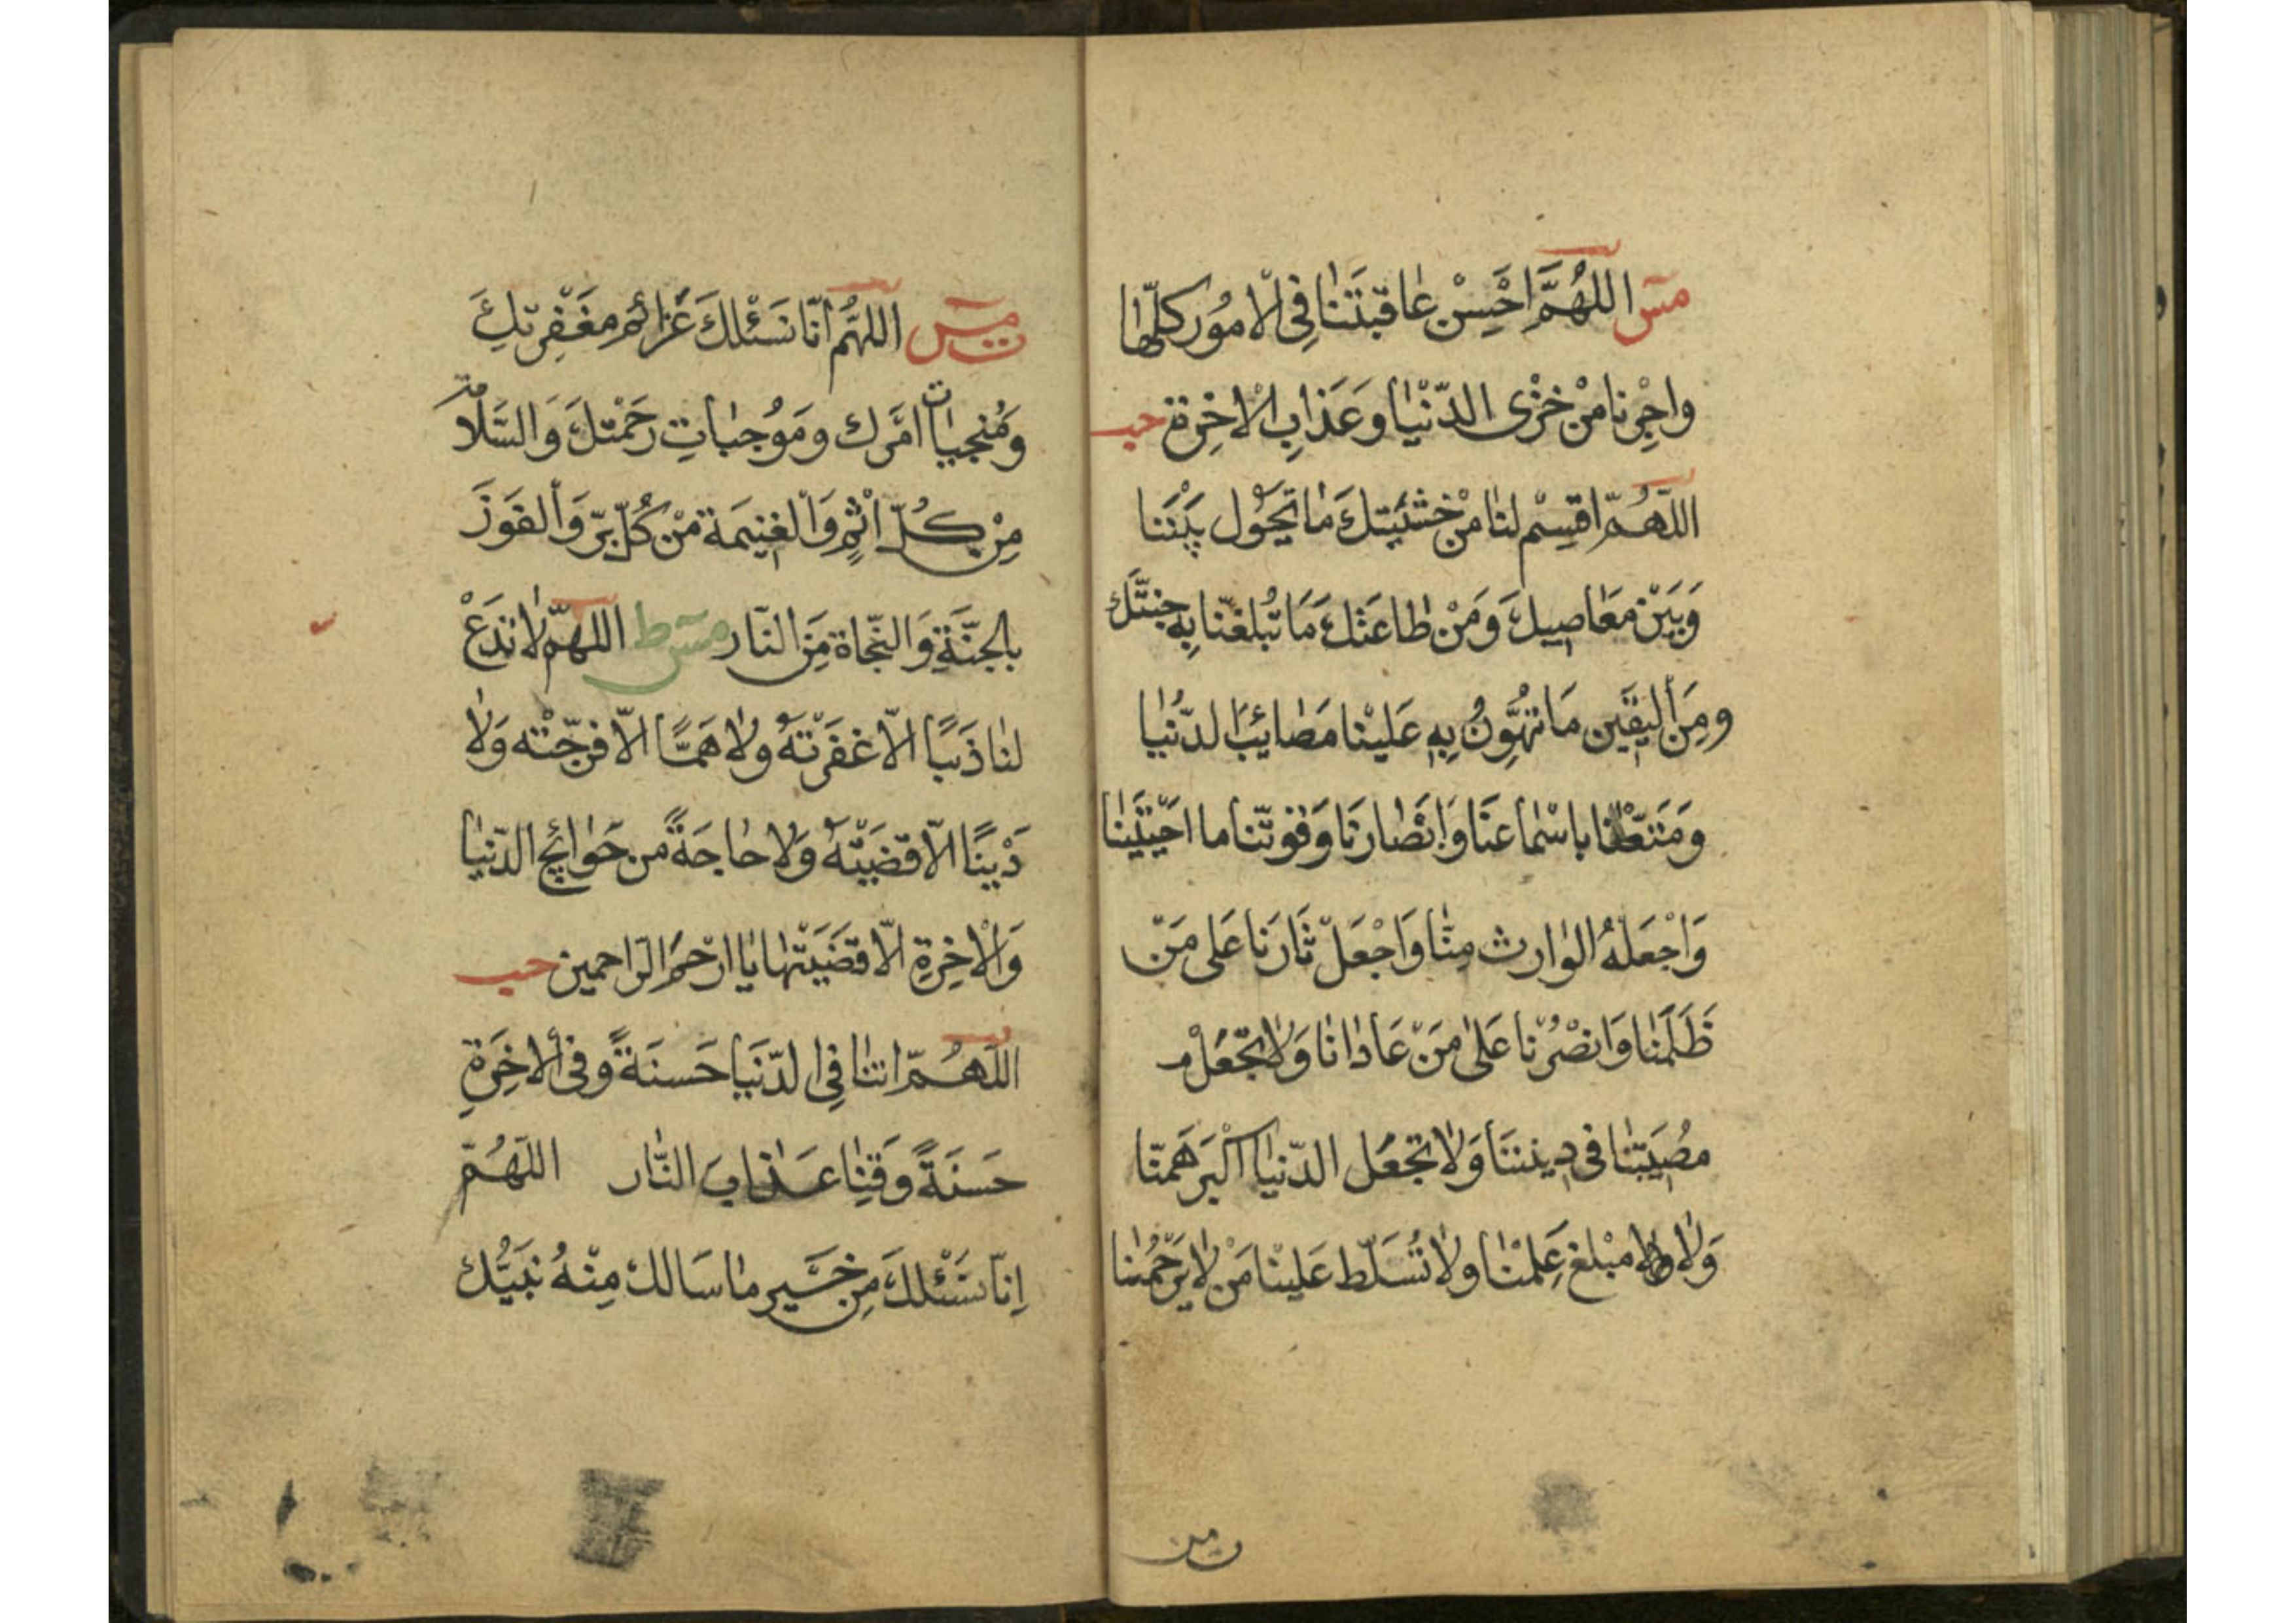 مس اللهُمَّ احْسِنْ عاقبَتَنا فِى الامُور كلّها
واجِرْنا مِنْ خزْىِ الدّنْيا وعَذابِ الاخِرَة حب
اللّهُمّ اقْسِمْ لنا مِنْ خشْيَتِكَ مَا تَحُول بَيْنَنا
وَبَيْنَ مَعَاصِيكَ وَمِنْ طاعَتكَ مَا تُبلغُنا بِهِ جنتَّكَ
ومِنَ اليَقين مَا تهَوِّنُ بِهِ عَلَيْنا مَصَائِبَ الدّنْيا
وَمَتعْنا باسْماعنَا وَابْصَارنَا وَقوتّنا ما احْيَيْتَنا
وَاجْعَلهُ الوارث مِنّا وَاجْعَلْ ثَارَنا عَلى مَنْ
ظَلَمَنا وَانصُرْنا عَلى مَنْ عَادانا وَلا تَجْعَلْ
مُصيبَتنا فى دِيننَا وَلا تجْعَل الدّنيا اكْبَرَ هَمّنا
وَلا مبْلغ عِلْمنا ولا تُسَلّط عَلينا مَنْ لا يَرْحَمُنا
ن مس
ن مس اللهُمّ انّا نَسْئلكَ عَزائمَ مغْفِرتِكَ
وَمُنجيات امْرك ومَوُجباتِ رَحْمتكَ وَالسَّلامة
مِنْ كُلّ اثْمٍ وَالغنِيمَة مِنْ كُلّ بِرّ وَالفَوزَ
بالجنّةِ وَالنّجاة مِنَ النّار مس ط اللهمّ لا تَدَعْ
لنا ذَنبًا الاّ غفَرْتَهُ ولا هَمًّا الاّ فرّجْته وَلا
دَيْنًا الاّ قضَيْتَهُ وَلا حاجَةً من حَوائجِ الدّنيا
وَالاخِرةِ الاّ قضَيْتَها يا ارْحَمَ الرّاحمين حب
اللّهُمّ اتنا فِى الدّنيا حَسنَةً وفى الاخِرَةِ
حَسنَةً وَقِنا عَذابَ النّار اللّهُمّ
اِنّا نسَئلكَ مِن خيرِ ما سَالك مِنْهُ نبَيُّك